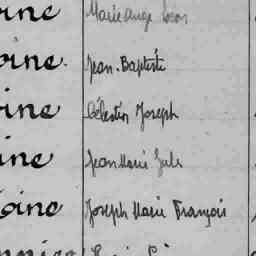 oine Marie Ange Léon
oine Jean-Baptiste
oine Célestin Joseph
oine Jean Marie Jules
oine Joseph Marie François